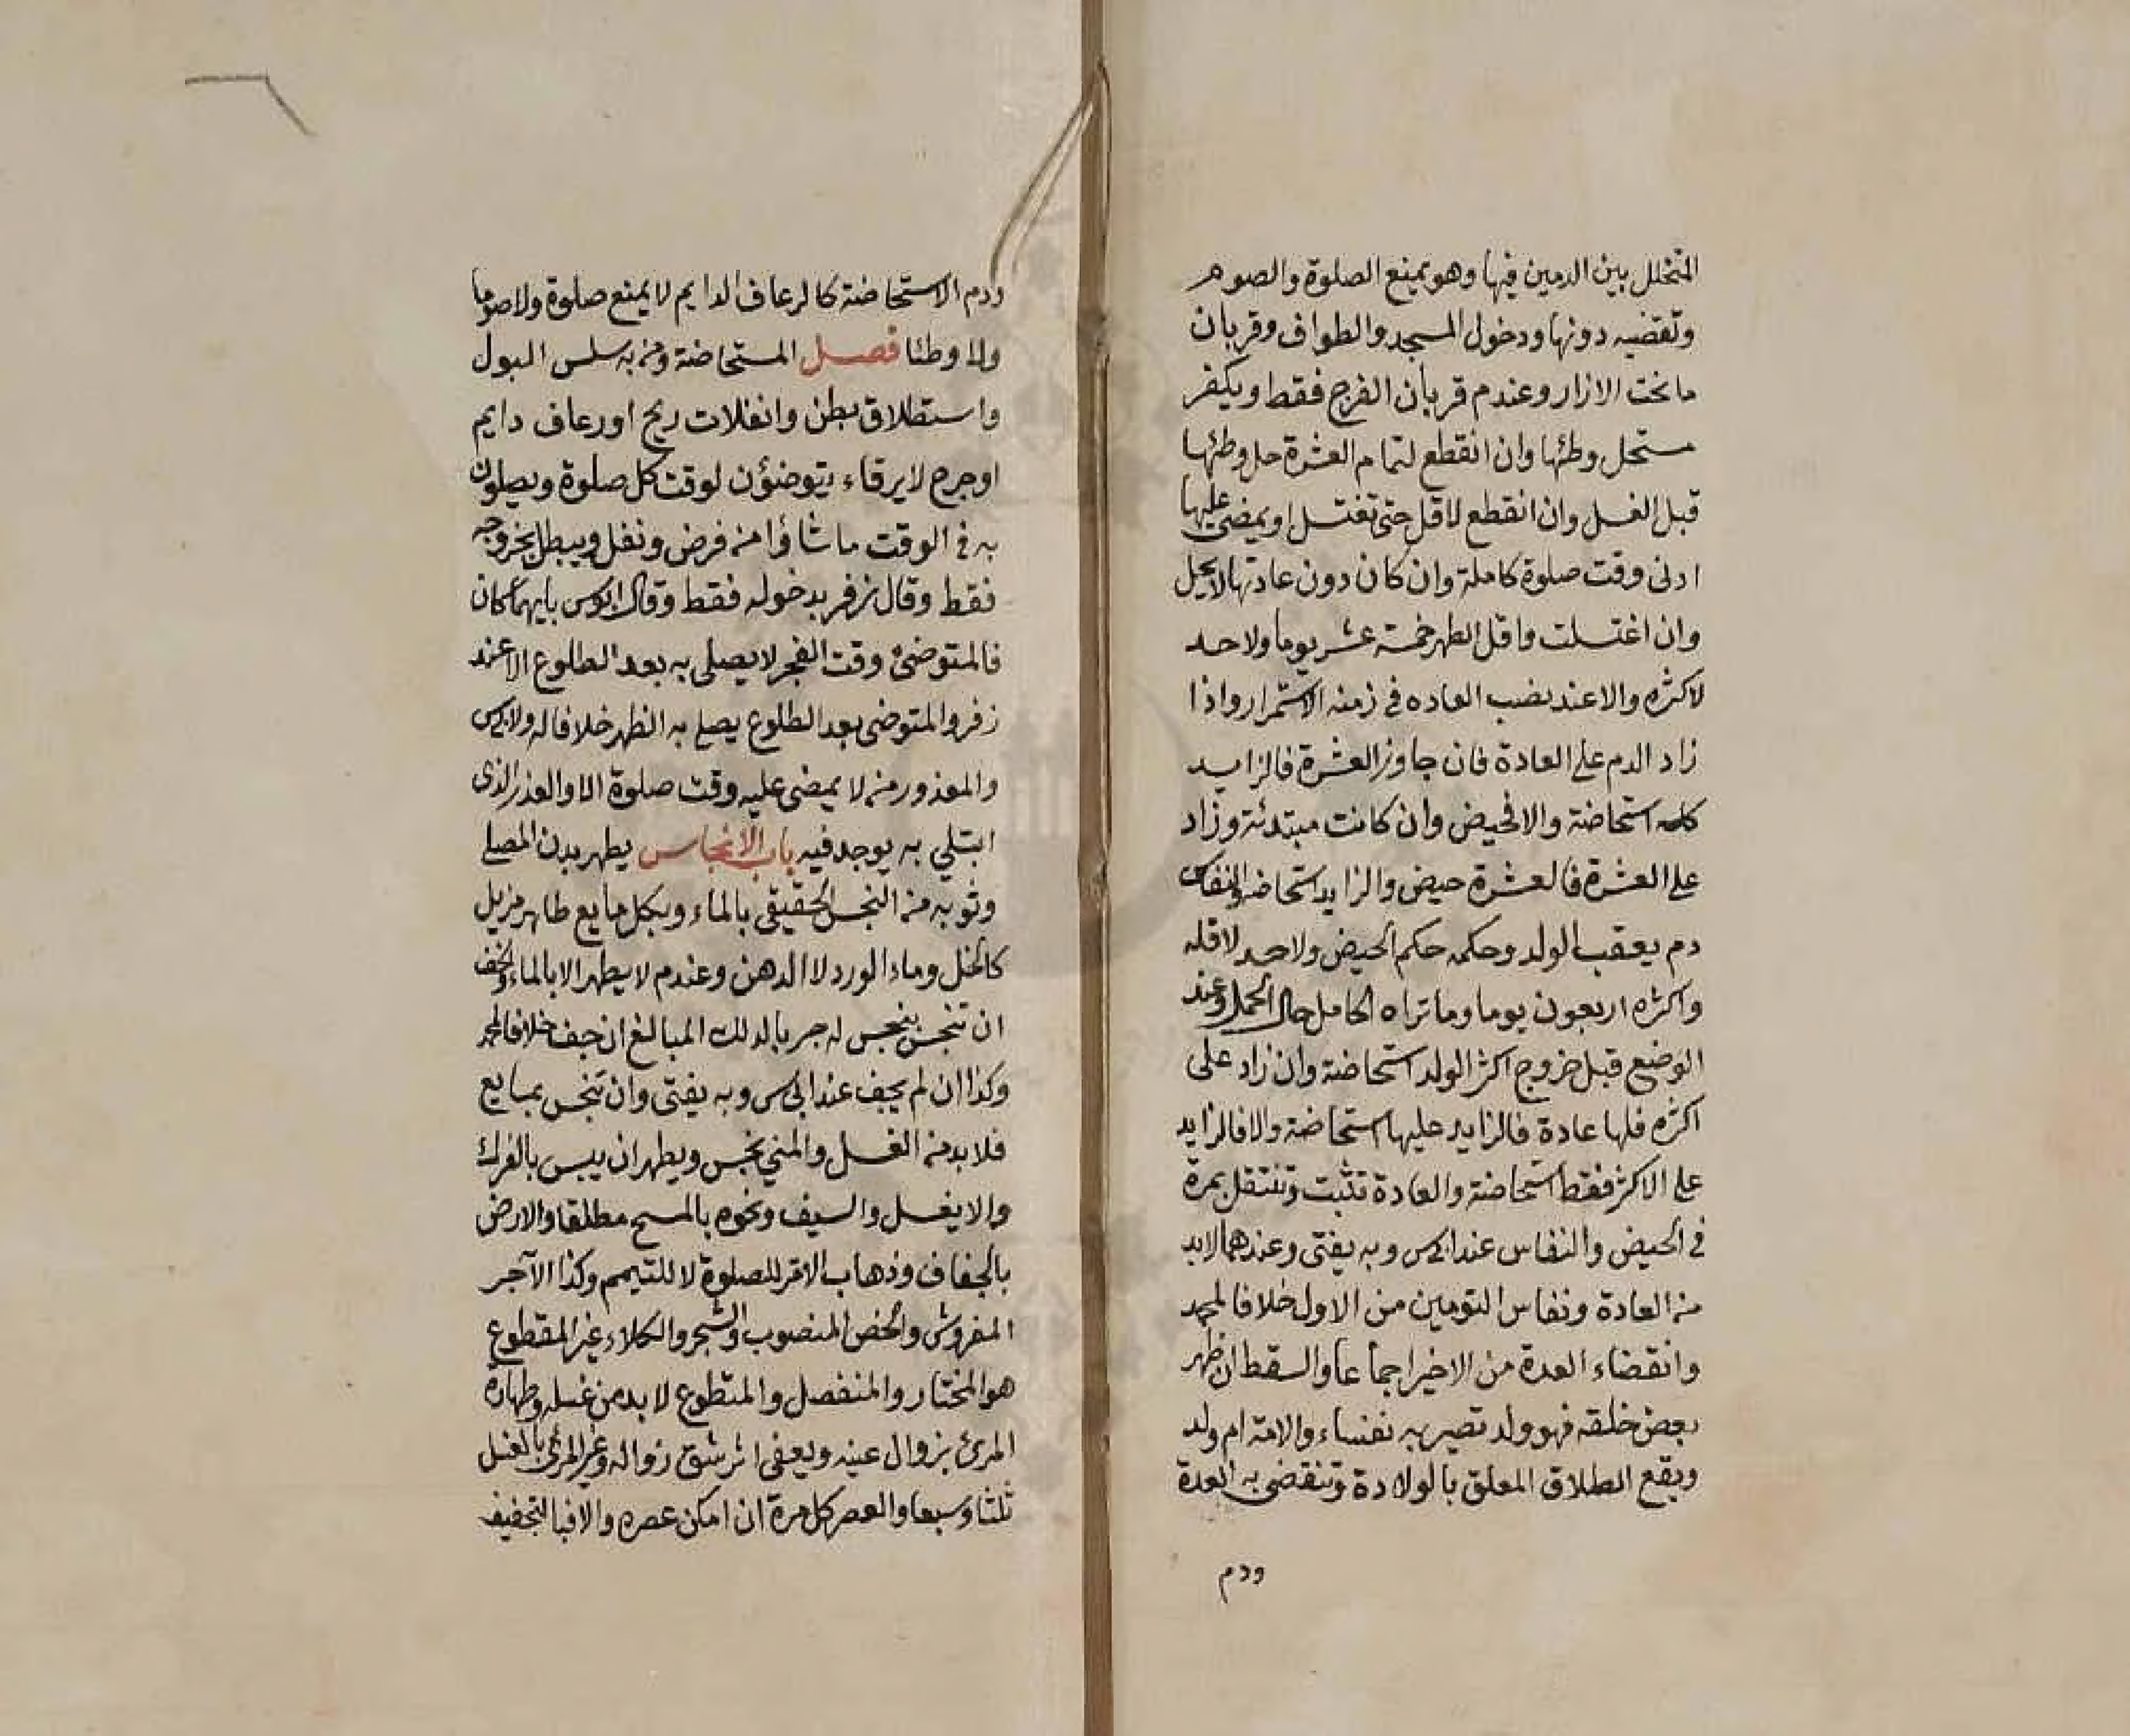 المتخلل بين الدمين فيها وهو يمنع الصلوة والصوم
وتقضيه دونها ودخول المسجد والطواف وقربان
ما تحت الازار وعند م قربان الفرج فقط ويكفر
مستحل وطئها وان انقطع لتمام العشرة حل وطئها
قبل الغسل وان انقطع لاقل حتى تغتسل او يمضي عليها
ادنى وقت صلوة كاملة وان كان دون عادتها لا يحل
وان اغتسلت واقل الطهر خمسة عشر يوما ولا حد
لاكثره والا عند نصب العاده في زمنه الاستمرار واذا
زاد الدم على العادة فان جاوز العشرة فالزايد
كله استحاضة والا فحيض وان كانت مبتدئة وزاد
على العشرة فالعشرة حيض والزايد استحاضة والنفاس
دم يعقب الولد وحكمه حكم الحيض ولا حد لاقله
واكثره اربعون يوما وما تراه الحامل حال الحمل وعند
الوضع قبل خروج اكثر الولد استحاضة وان زاد على
اكثره فلها عادة فالزايد عليها استحاضة والا فالزايد
على الاكثر فقط استحاضة والعادة تثبت وتنتقل بمرة
في الحيض والنفاس عند ابى س وبه يفتى وعندهما لابد
منه العادة ونفاس التومين من الاول خلافا لمحمد
وانقضاء العدة من الاخير اجماعا والسقط ان ظهر
بعض خلقه فهو ولد تصير به نفساء والامة ام ولد
ويقع الطلاق المعلق بالولادة وتنقضى به العدة
ودم
ودم الاستحاضة كالرعاف الدايم لا يمنع صلوة ولا صوما
ولا وطئا فصل المستحاضة ومن به سلس البول
واستطلاق بطن وانفلات ريح او رعاف دايم
او جرح لا يرقاء يتوضئون لوقت كل صلوة ويصلون
به في الوقت ما شاؤا منه فرض ونفل ويبطل بخروجه
فقط وقال زفر بدخوله فقط وقال ابو س بايهما كان
فالمتوضئ وقت الفجر لا يصلى به بعد الطلوع الا عند
زفر والمتوضى بعد الطلوع يصلى به الظهر خلافا له ولابى س
والمعذور منه لا يمضى عليه وقت صلوة الا والعذر الذى
ابتلي به يوجد فيه باب الانجاس يطهر بدن المصلى
وثوبه منه النجس الحقيقى بالماء وبكل مايع طاهر مزيل
كالخل وماء الورد لا الدهن وعند م لا يطهر الا بالماء والخف
ان تنجس بنجس له جرم بالدلك المبالغ ان جف خلافا لمحمد
وكذا ان لم يجف عند ابى س وبه يفتى وان تنجس بمايع
فلا بد منه الغسل والمني نجس ويطهر ان يبس بالفرك
والا يغسل والسيف ونحوه بالمسح مطلقا والارض
بالجفاف وذهاب الاثر للصلوة لا للتيمم وكذا الآجر
المفروش والخص المنصوب والشجر والكلاء غير المقطوع
هو المختار والمنفصل والمقطوع لا بد من غسله وطهارة
المرئ بزوال عينه ويعفى اثر شق زواله وغير المرئى بالغسل
ثلثا وسبعا والعصر كل مرة ان امكن عصره والا فبالتجفيف